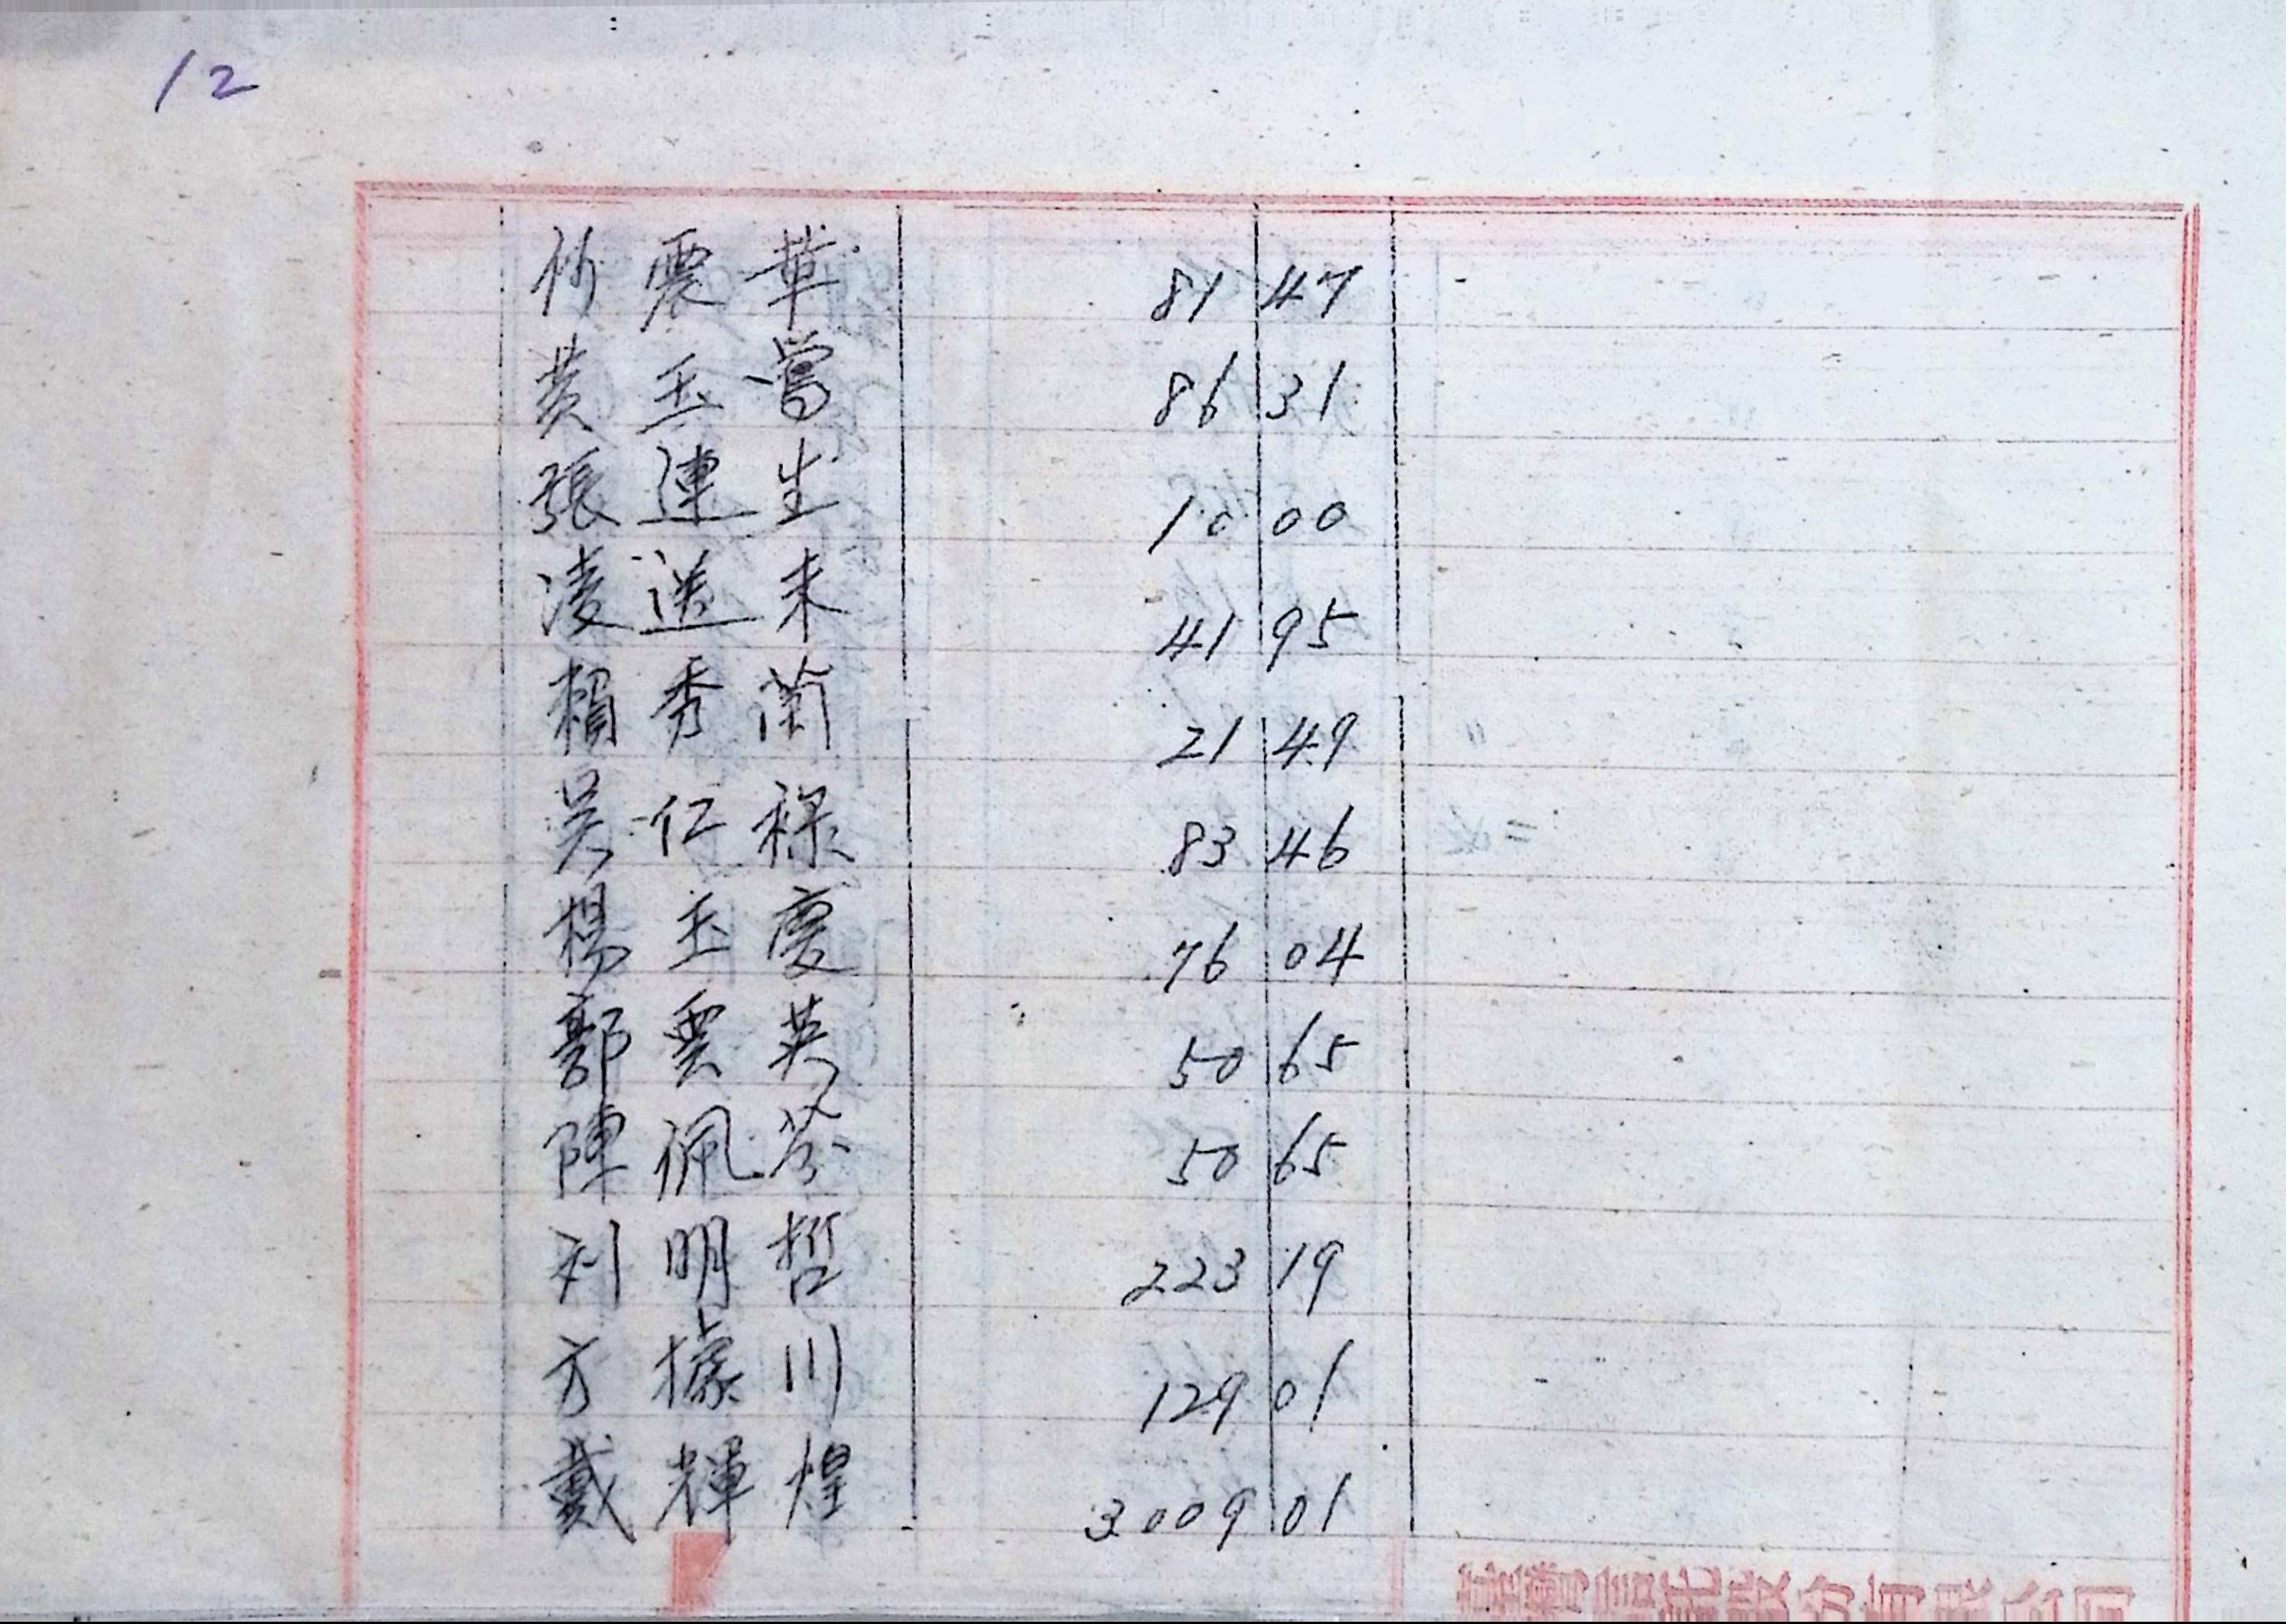 12
震華 81 47
黃玉當 86 31
張連生 10 00
凌送来 41 95
賴秀蘭 21 49
吳仁祿 83 46
楊玉慶 76 04
郭雲英 50 65
陳佩芬 50 65
刘明哲 223 19
方據川 129 01
戴輝煌 3009 01